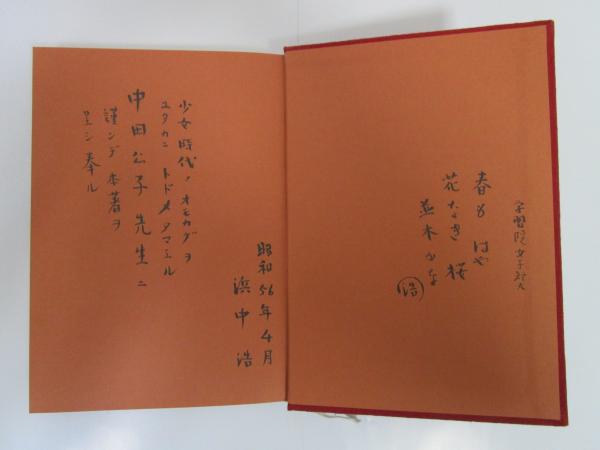 学習院女子短大
春もはや
花なき桜
並木かな
浩
少女時代ノオモカゲヲ
ユタカニトドメタマエル
中田公子先生ニ
謹ンデ本著ヲ
呈シ奉ル
昭和56年4月
浜中浩